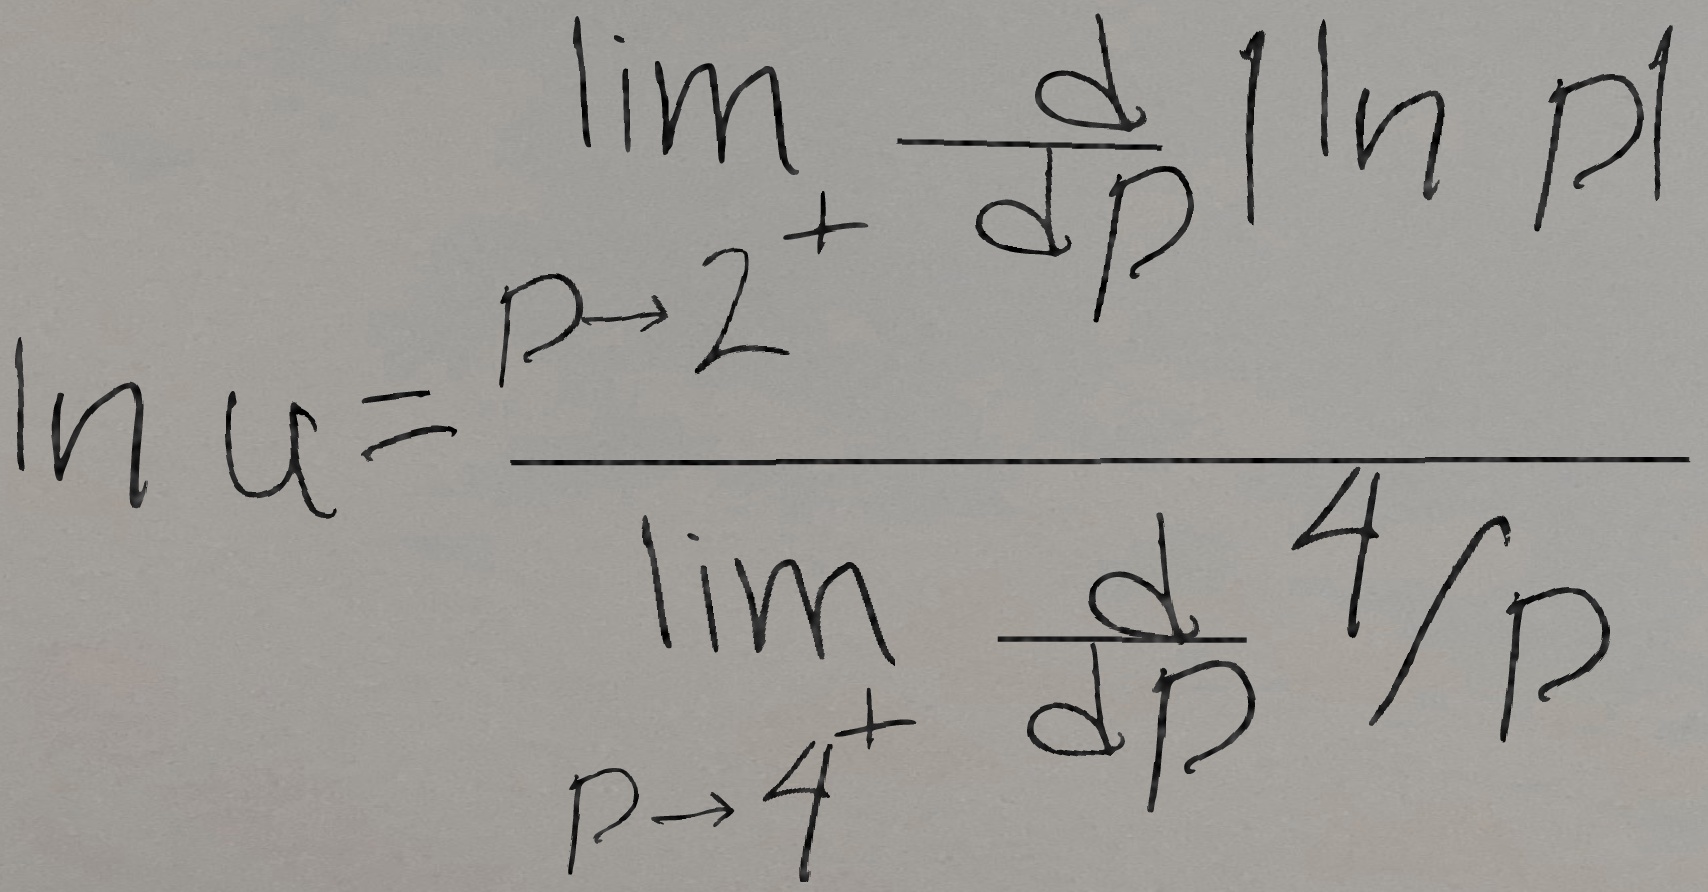 ln u = \frac{\lim_{p \to 2^+} \frac{d}{dp} |\ln p|}{\lim_{p \to 4^+} \frac{d}{dp} 4/p}